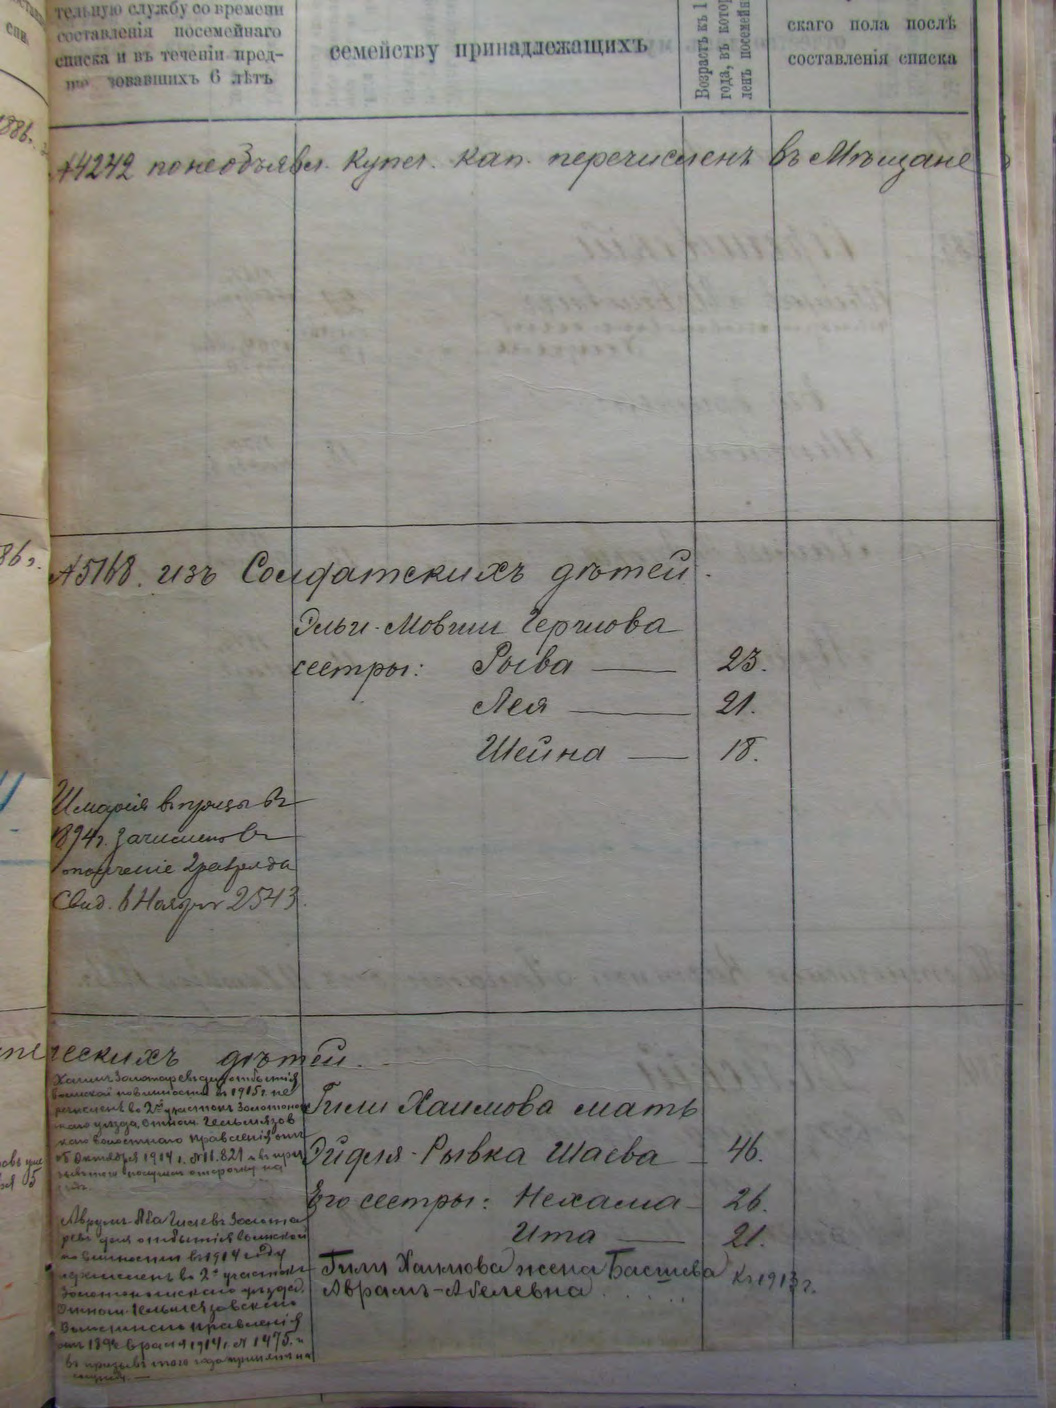 тельную службу со времени
составленія посемейнаго
списка и въ теченіи пред-
шествовавшихъ 6 лѣтъ
семейству принадлежащихъ
Возрастъ къ 1
года, въ котор
ленъ посемейн
скаго пола послѣ
составленія списка
1886г.
№4242 по необъявл. купеч. кап. перечисленъ въ Мѣщане
86г.
№5168. изъ Солдатскихъ дѣтей.
Эльи-Мовши Гершова
сестры: Рыва — 23.
Лея — 21.
Шейна — 18.
въ
1894г. зачисленъ въ
ополченіе 2 разряда
Свид. 2543.
ческихъ дѣтей.
Хаимъ Золотаревъ для отбытія
воинской повинности въ 1915г. пе
речисленъ во 2й участокъ Золотонош
скаго уѣзда, отнош. Гельмязов
скаго волостнаго правленія отъ
Октября 1914 г. №11.821
Гили Хаимова мать
Эйдля-Рывка Шаева — 46.
Его сестры: Нехама — 26.
Ита — 21.
Гили Хаимова жена Басшева
Аврамъ-Абелевна..... къ 1913г.
Аврумъ Аба Гилевъ Золота
ревъ для отбытія воинской
повинности въ 1914 году
перечисленъ во 2й участокъ
Золотоношскаго уѣзда.
Отнош. Гельмязовскаго
Волостнаго Правленія
1914г. №1475.